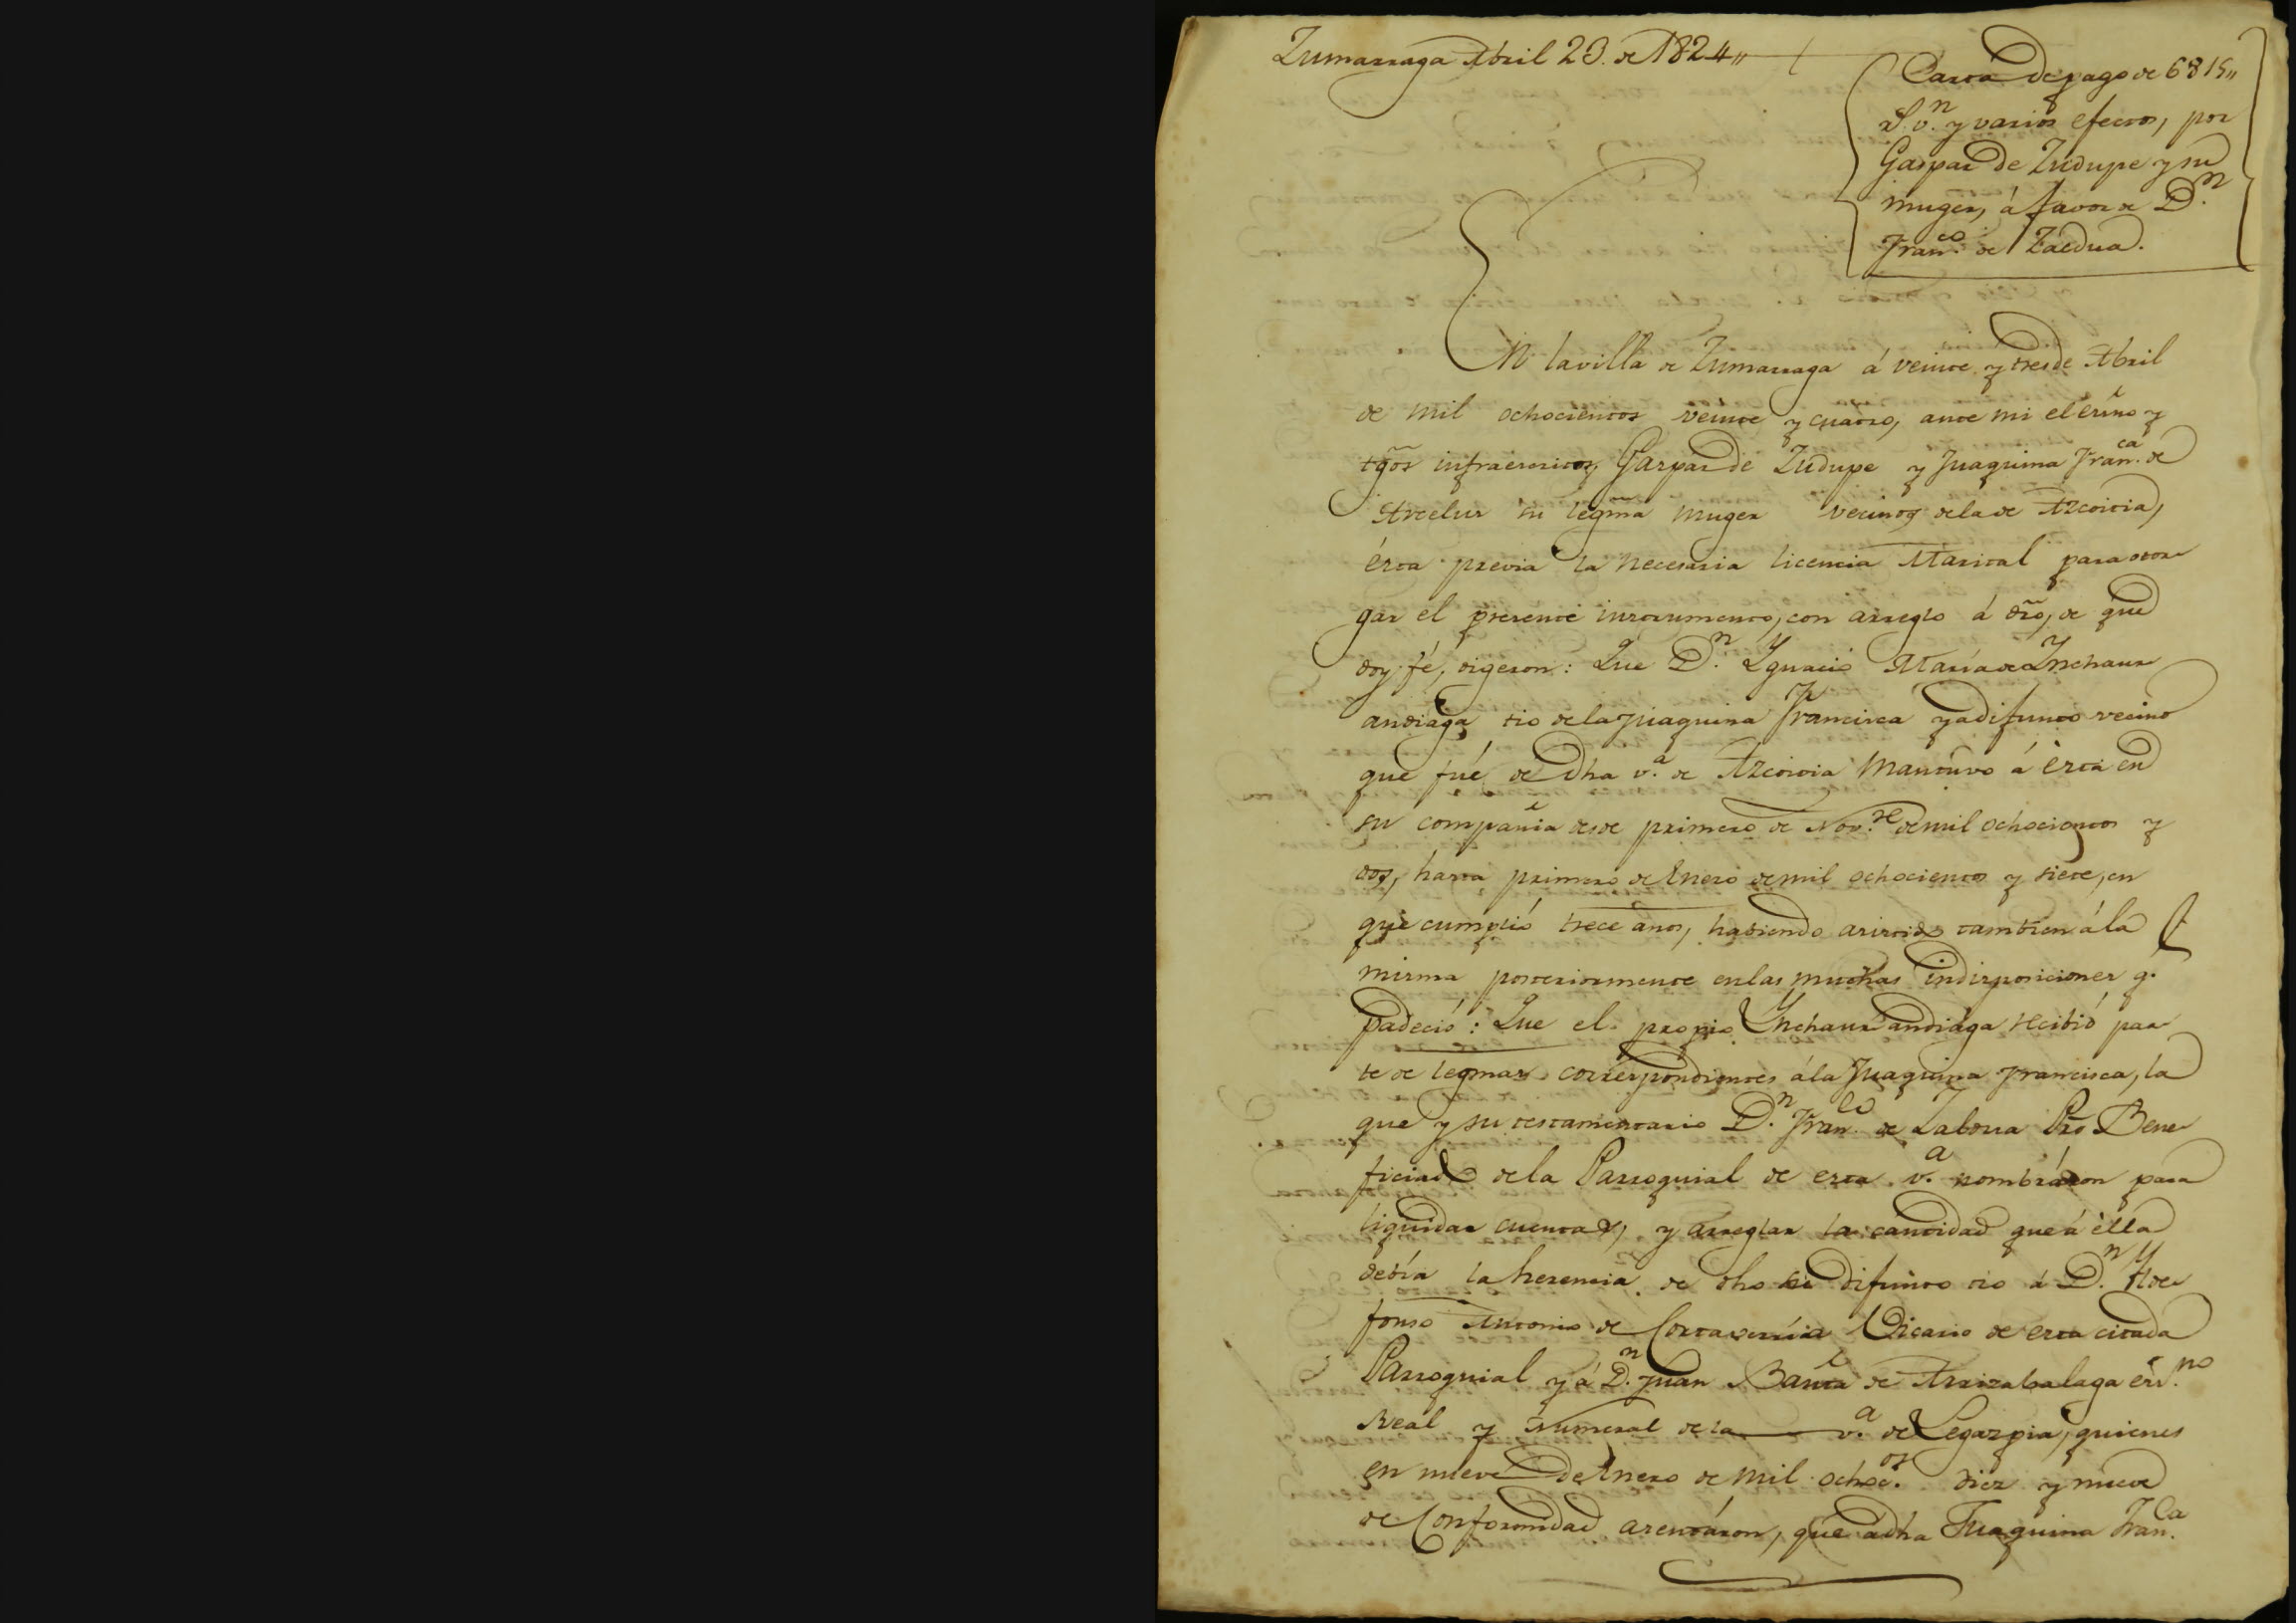 Zumarraga Abril 23. de 1824,,
Carta de pago de 6815,,
R.s v.n y varios efectos, por
Gaspar de Zudupe y su
muger, á favor de D.n
Fran.co de Zaldua.
En la villa de Zumarraga á veinte y tres de Abril
de mil ochocientos veinte y cuatro, ante mi el esñno y
tgõs infraescritos, Gaspar de Zudupe y Juaquina Fran.ca de
Arcelus su legma muger vecinos de la de Azcoitia,
ésta previa la necesaria licencia Marital para otor
gar el presente instrumento, con arreglo á dro, de que
doy fé, digeron: Que D.n Ygnacio Maria de Ynchaur
andiaga tio de la Juaquina Francisca ya difunto vecino
que fué de dha v.a de Azcoitia mantuvo á ésta en
su compañia desde primero de Nov.re de mil ochocientos y
dos, hasta primero de Enero de mil ochocientos y siete, en
que cumplió trece años, habiendo asistido tambien á la
misma posteriormente en las muchas indisposiciones q.
padeció: Que el propio Ynchaurandiaga recibió par
te de legmas correspondientes á la Juaquina Francisca, la
que y su testamentario D.n Fran.co de Zaldua Pro Bene
ficiado de la Parroquial de esta v.a nombráron para
liquidar cuentas, y arreglar la cantidad que á élla
debía la herencia de dho su difunto tio á D.n Ylde
fonso Antonio de Cortaverria Vicario de esta citada
Parroquial y á D.n Juan Bauta de Arrizabalaga esñ.no
Real y Numeral de la v.a de Legazpia, quienes
en nueve de Enero de mil ochoc.os diez y nueve
de Conformidad asentáron, que á dha Juaquina Fran.ca